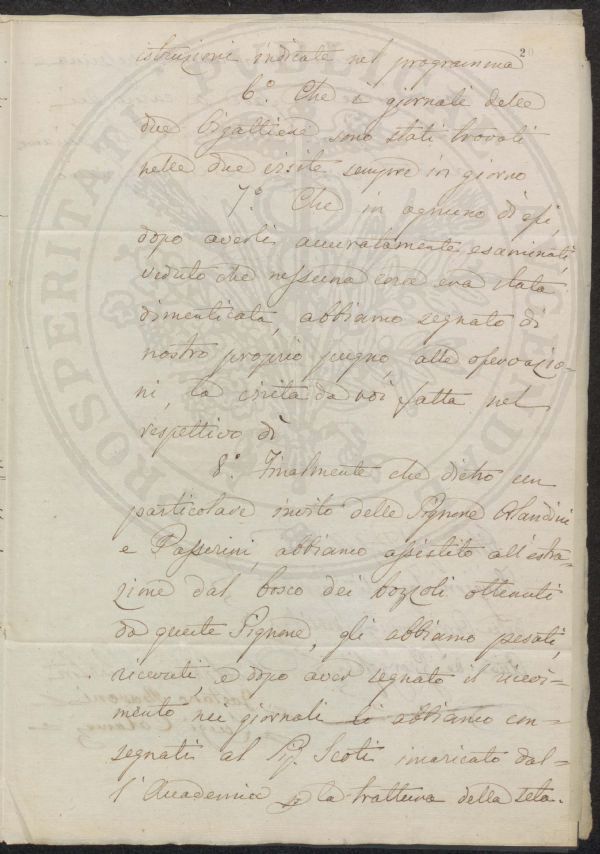 2
istruzioni indicate nel programma
6.° Che i giornali delle
due Bigattiere sono stati trovati
nelle due visite sempre in giorno
7.° Che in ognuno di essi,
dopo averli accuratamente esaminati,
veduto che nessuna cosa era stata
dimenticata, abbiamo segnato di
nostro proprio pugno, alle osservazio-
ni, la visita da noi fatta nel
respettivo dì
8.° Finalmente che dietro un
particolare invito delle Signore Orlandini
e Passerini, abbiamo assistito all'estra-
zione dal bosco dei bozzoli ottenuti
da queste Signore, gli abbiamo pesati,
ricevuti, e dopo aver segnato il ricevi-
mento nei giornali li abbiamo con-
segnati al Sig. Scoti incaricato dal-
l'Accademia per la trattura della seta.
PROSPERITATI PUBLICAE AUGENDAE